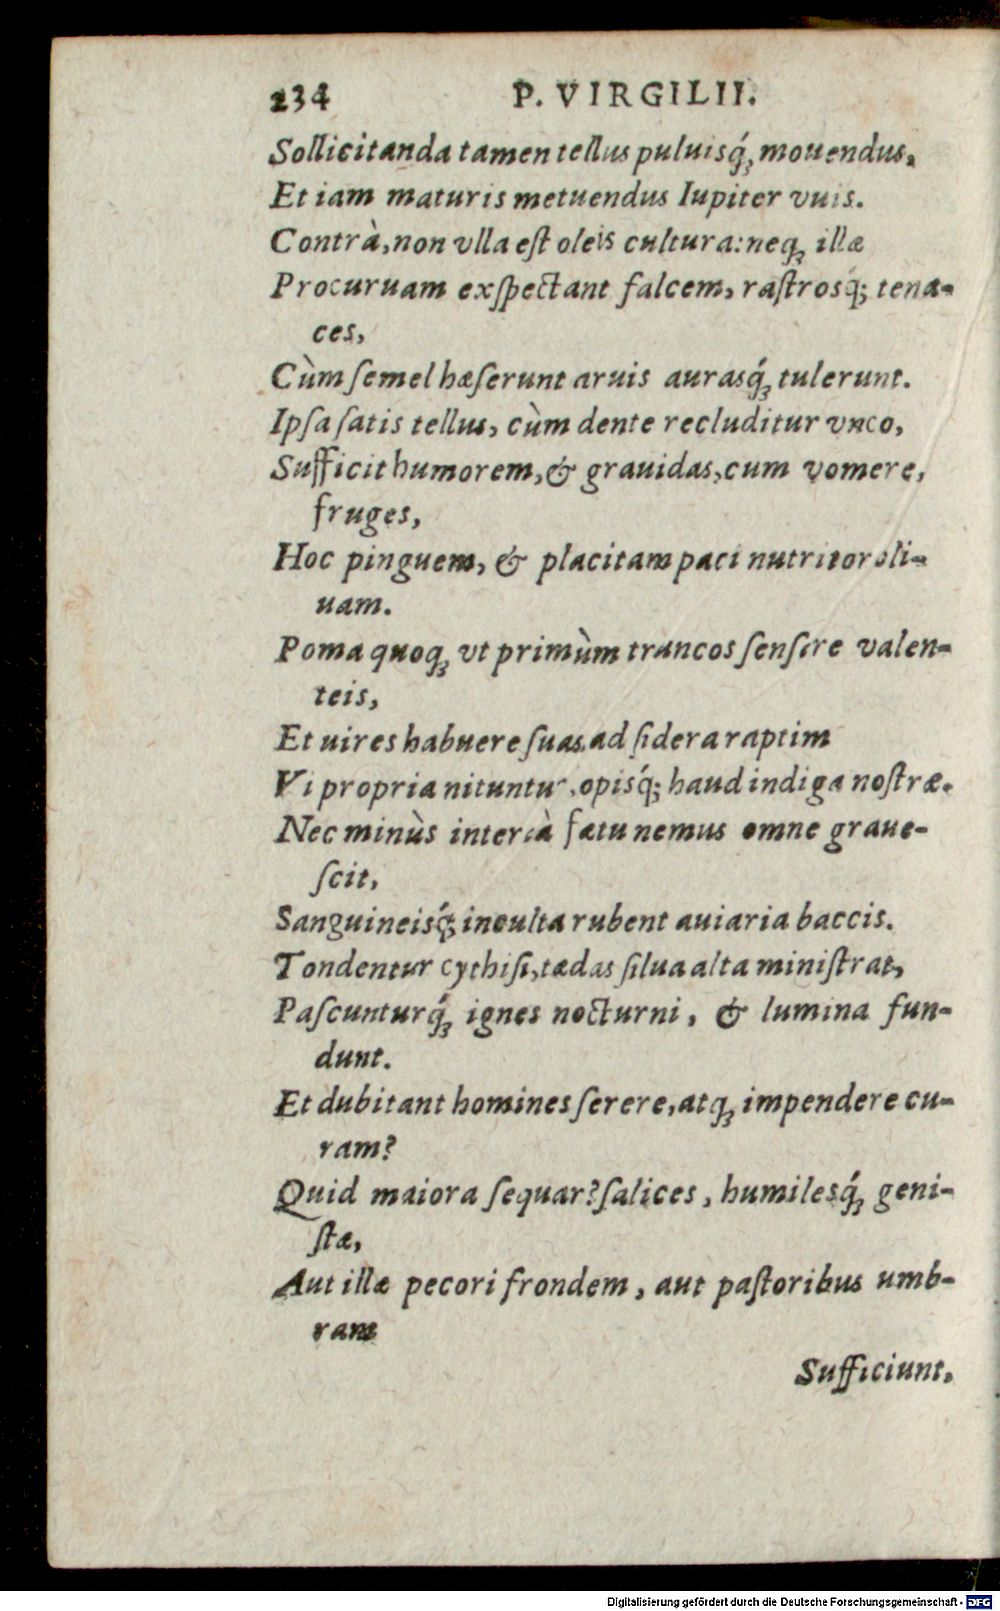 234 P. VIRGILII.
Sollicitanda tamen tellus puluisq́ꝫ mouendus,
Et iam maturis metuendus Iupiter vuis.
Contrà, non vlla est oleis cultura: neqꝫ illæ
Procuruam exspectant falcem, rastrosq́; tena-
ces,
Cùm semel hæserunt aruis aurasq́ꝫ tulerunt.
Ipsa satis tellus, cùm dente recluditur vnco,
Sufficit humorem, & grauidas, cum vomere,
fruges,
Hoc pinguem, & placitam paci nutritor oli-
uam.
Poma quoqꝫ vt primùm truncos sensere valen-
teis,
Et uires habuere suas, ad sidera raptim
Vi propria nituntur, opisq́; haud indiga nostræ.
Nec minùs intereà fætu nemus omne graue-
scit,
Sanguineisq́ꝫ inculta rubent auiaria baccis.
Tondentur cythisi, tædas silua alta ministrat,
Pascunturq́ꝫ ignes nocturni, & lumina fun-
dunt.
Et dubitant homines serere, atqꝫ impendere cu-
ram?
Quid maiora sequar? salices, humilesq́ꝫ geni-
stæ,
Aut illæ pecori frondem, aut pastoribus umb-
ram
Sufficiunt,
Digitalisierung gefördert durch die Deutsche Forschungsgemeinschaft - DFG